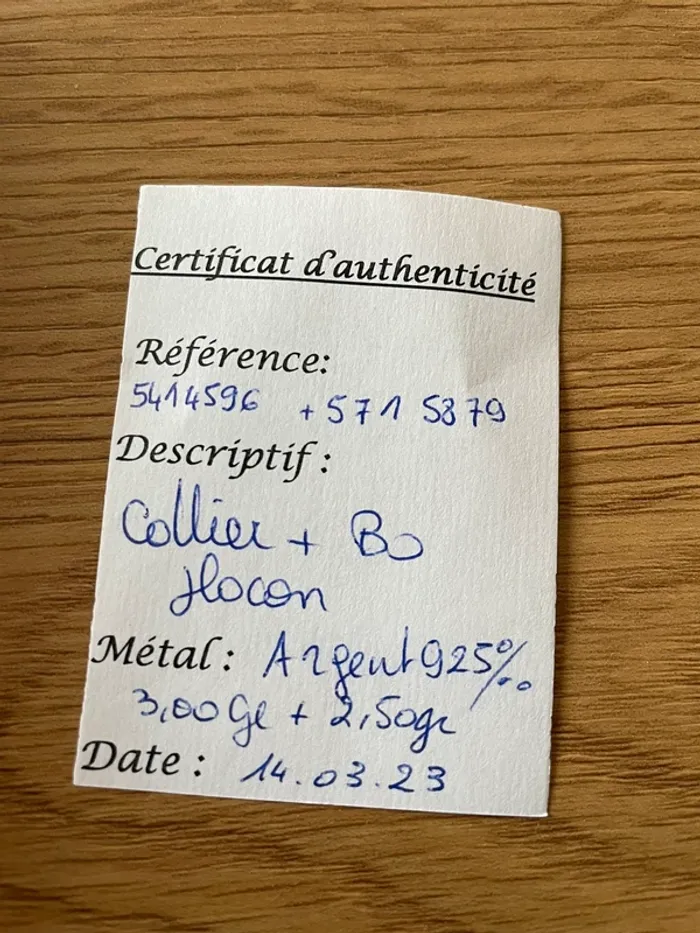 Certificat d'authenticité
Référence:
5414596 + 571 5879
Descriptif :
Collier + Bo
flocon
Métal : Argent 925‰
3,00 Gr + 2,50gr
Date : 14.03.23